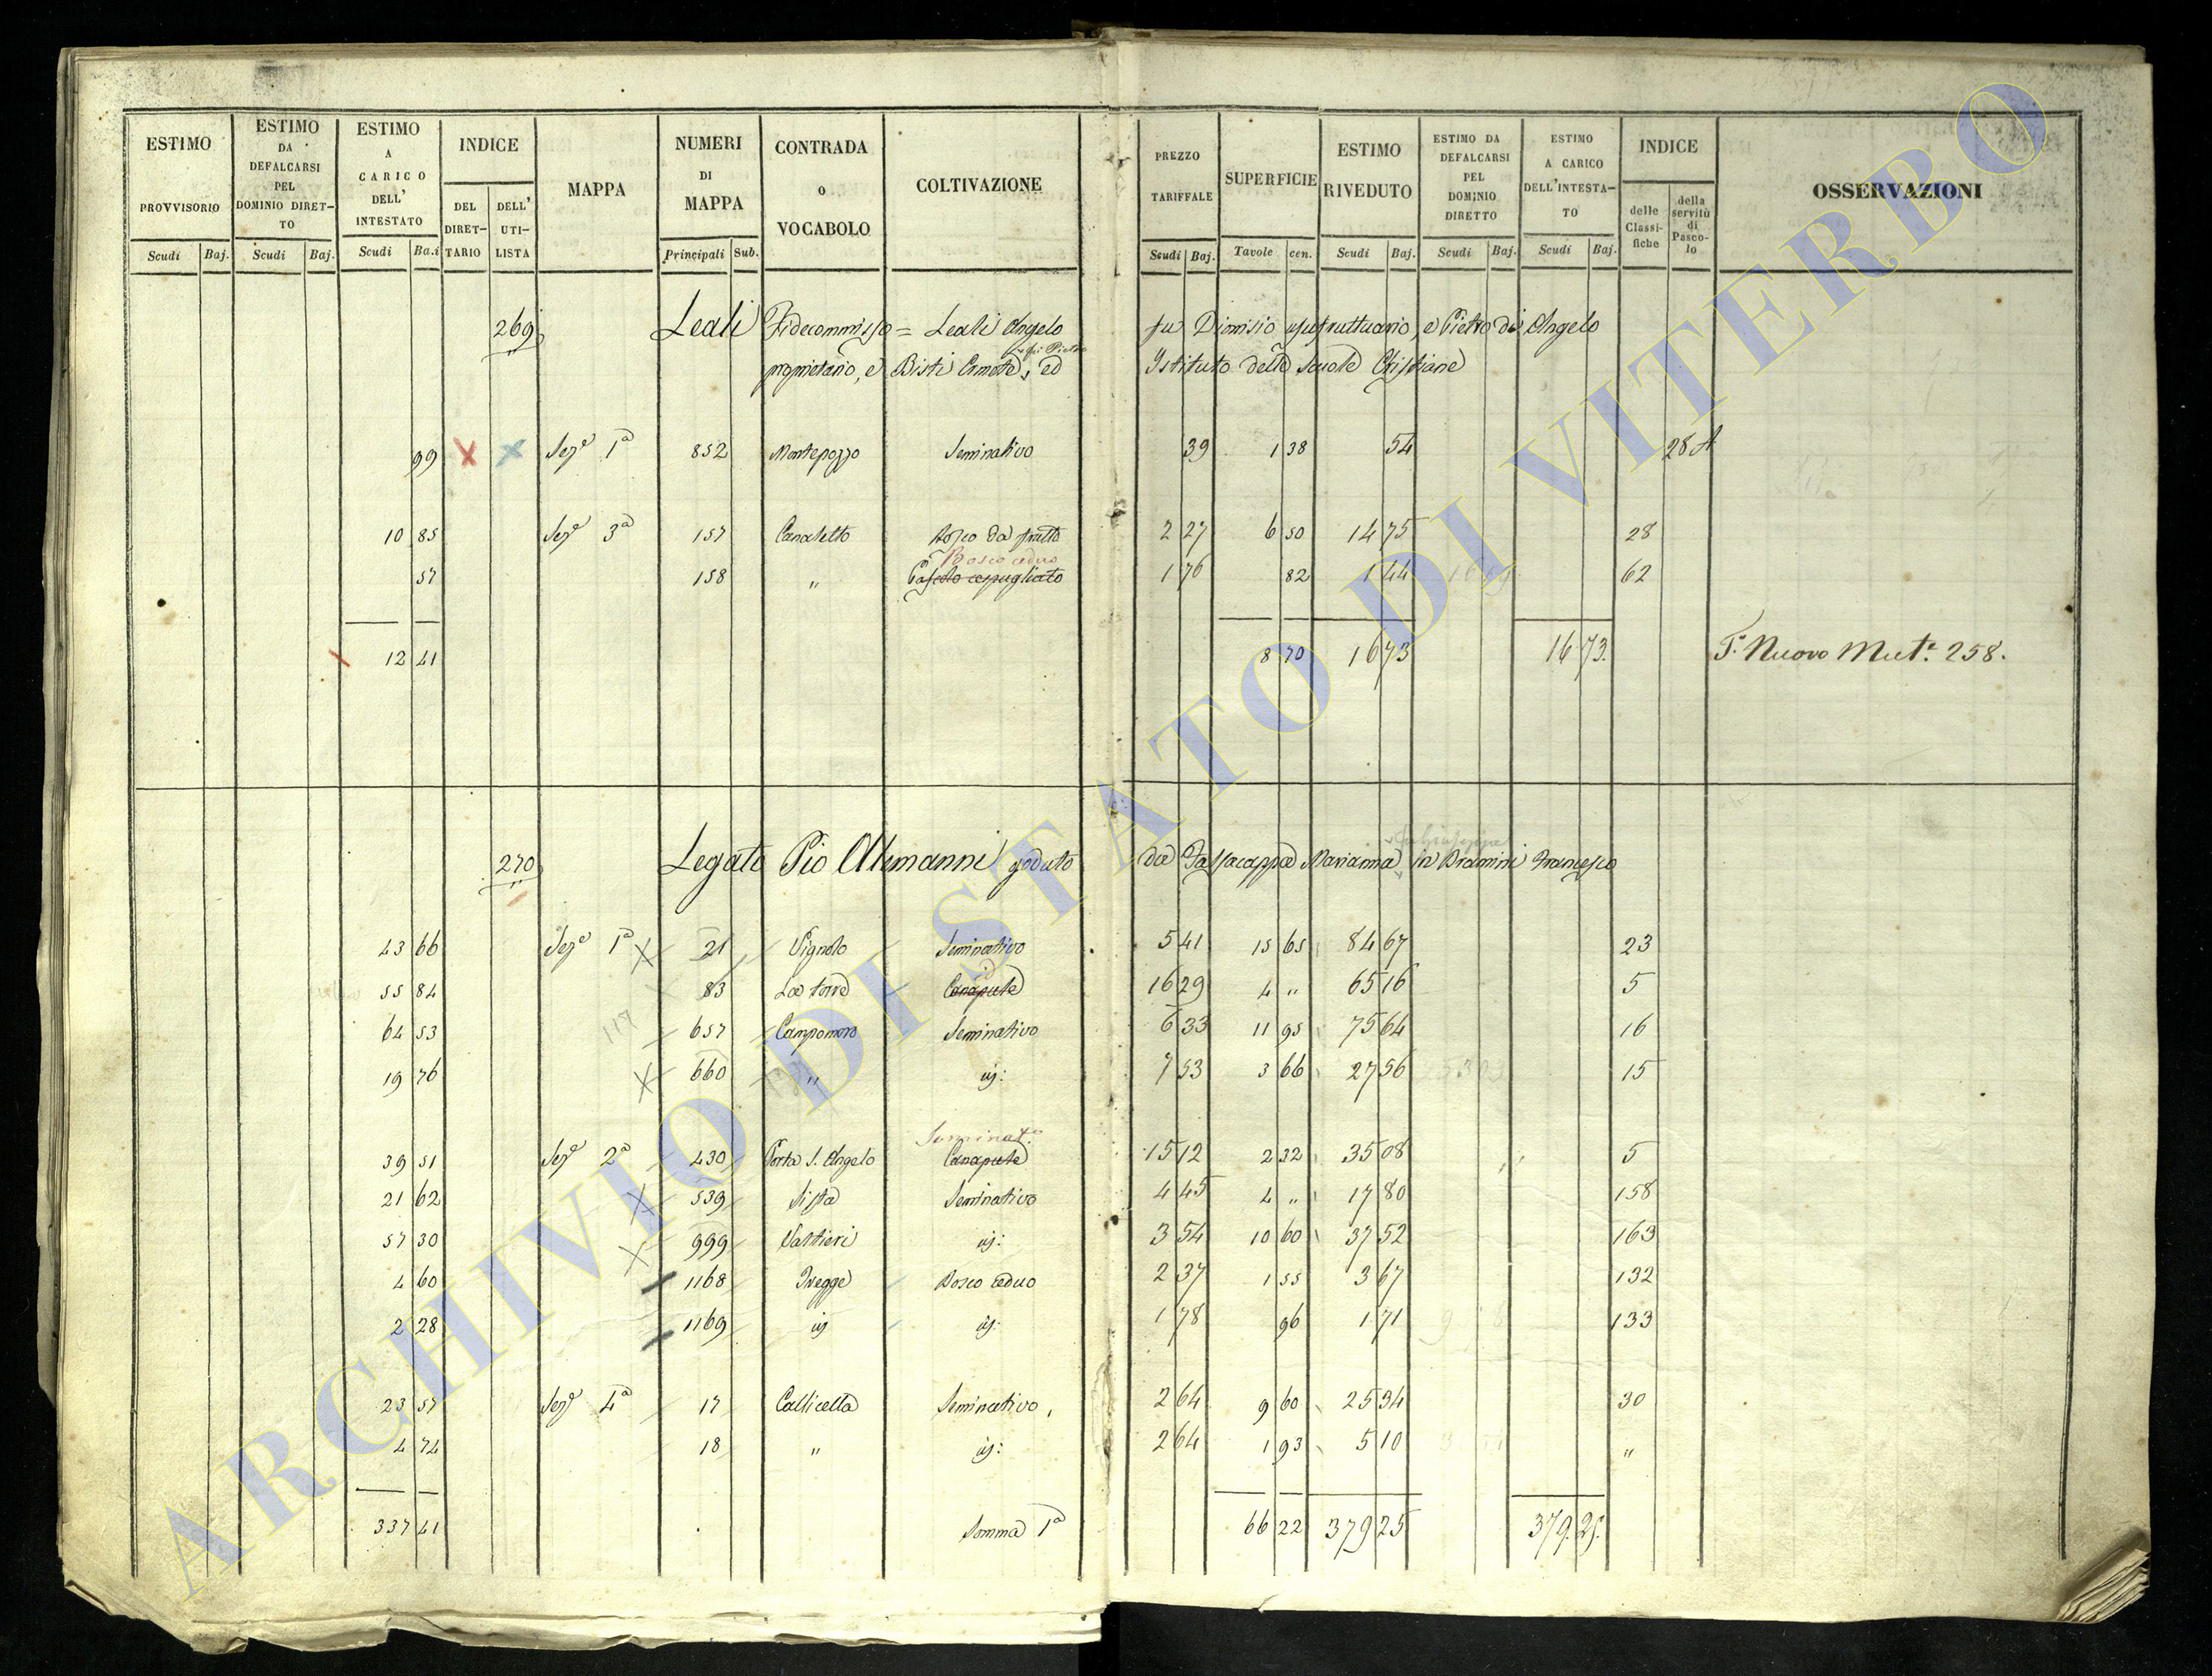 ESTIMO PROVVISORIO Scudi Baj.
ESTIMO DA DEFALCARSI PEL DOMINIO DIRETTO Scudi Baj.
ESTIMO A CARICO DELL' INTESTATO Scudi Baj.
INDICE DEL DIRETTARIO DELL' UTILISTA
MAPPA
NUMERI DI MAPPA Principali Sub.
CONTRADA o VOCABOLO
COLTIVAZIONE
PREZZO TARIFFALE Scudi Baj.
SUPERFICIE Tavole cen.
ESTIMO RIVEDUTO Scudi Baj.
ESTIMO DA DEFALCARSI PEL DOMINIO DIRETTO Scudi Baj.
ESTIMO A CARICO DELL'INTESTATO Scudi Baj.
INDICE delle Classifiche della servitù di Pascolo
OSSERVAZIONI
269 Leali Fidecommisso = Leali Angelo fu Dionisio usufruttuario, e Pietro di Angelo
proprietario, e Bisti Ermete fu Pietro ed Istituto delle Scuole Cristiane
99 X X Sez.e 1a 852 Montepozzo Seminativo 39 1 38 54 28 A
10 85 Sez.e 3a 157 Canaletto Bosco da frutto 2 27 6 50 14 75 28
Bosco ceduo
57 158 " Pascolo cespugliato 1 76 82 1 44 62
12 41 8 70 16 73 16 73. T.a Nuovo Mut.a 258.
270 Legato Pio Altimanni goduto da Passacappa Marianna in Bramini Francesco
43 66 Sez.e 1a X 21 Vignolo Seminativo 5 41 15 65 84 67 23
55 84 83 La torre Canapule 16 29 4 " 65 16 5
64 53 117 657 Campomoro Seminativo 6 33 11 95 75 64 16
19 76 X 660 " id: 7 53 3 66 27 56 15
Seminat.o
39 51 Sez.e 2a 430 Porta S. Angelo Canapule 15 12 2 32 35 08 5
21 62 X 539 Sista Seminativo 4 45 4 " 17 80 158
57 30 X 999 Valtieri id: 3 54 10 60 37 52 163
4 60 1168 Ivegge Bosco ceduo 2 37 1 55 3 67 132
2 28 1169 id id: 1 78 96 1 71 133
23 57 Sez.e 4a 17 Callicella Seminativo 2 64 9 60 25 34 30
4 74 18 " id: 2 64 1 93 5 10 "
337 41 Somma 1a 66 22 379 25 379.25.
ARCHIVIO DI STATO DI VITERBO